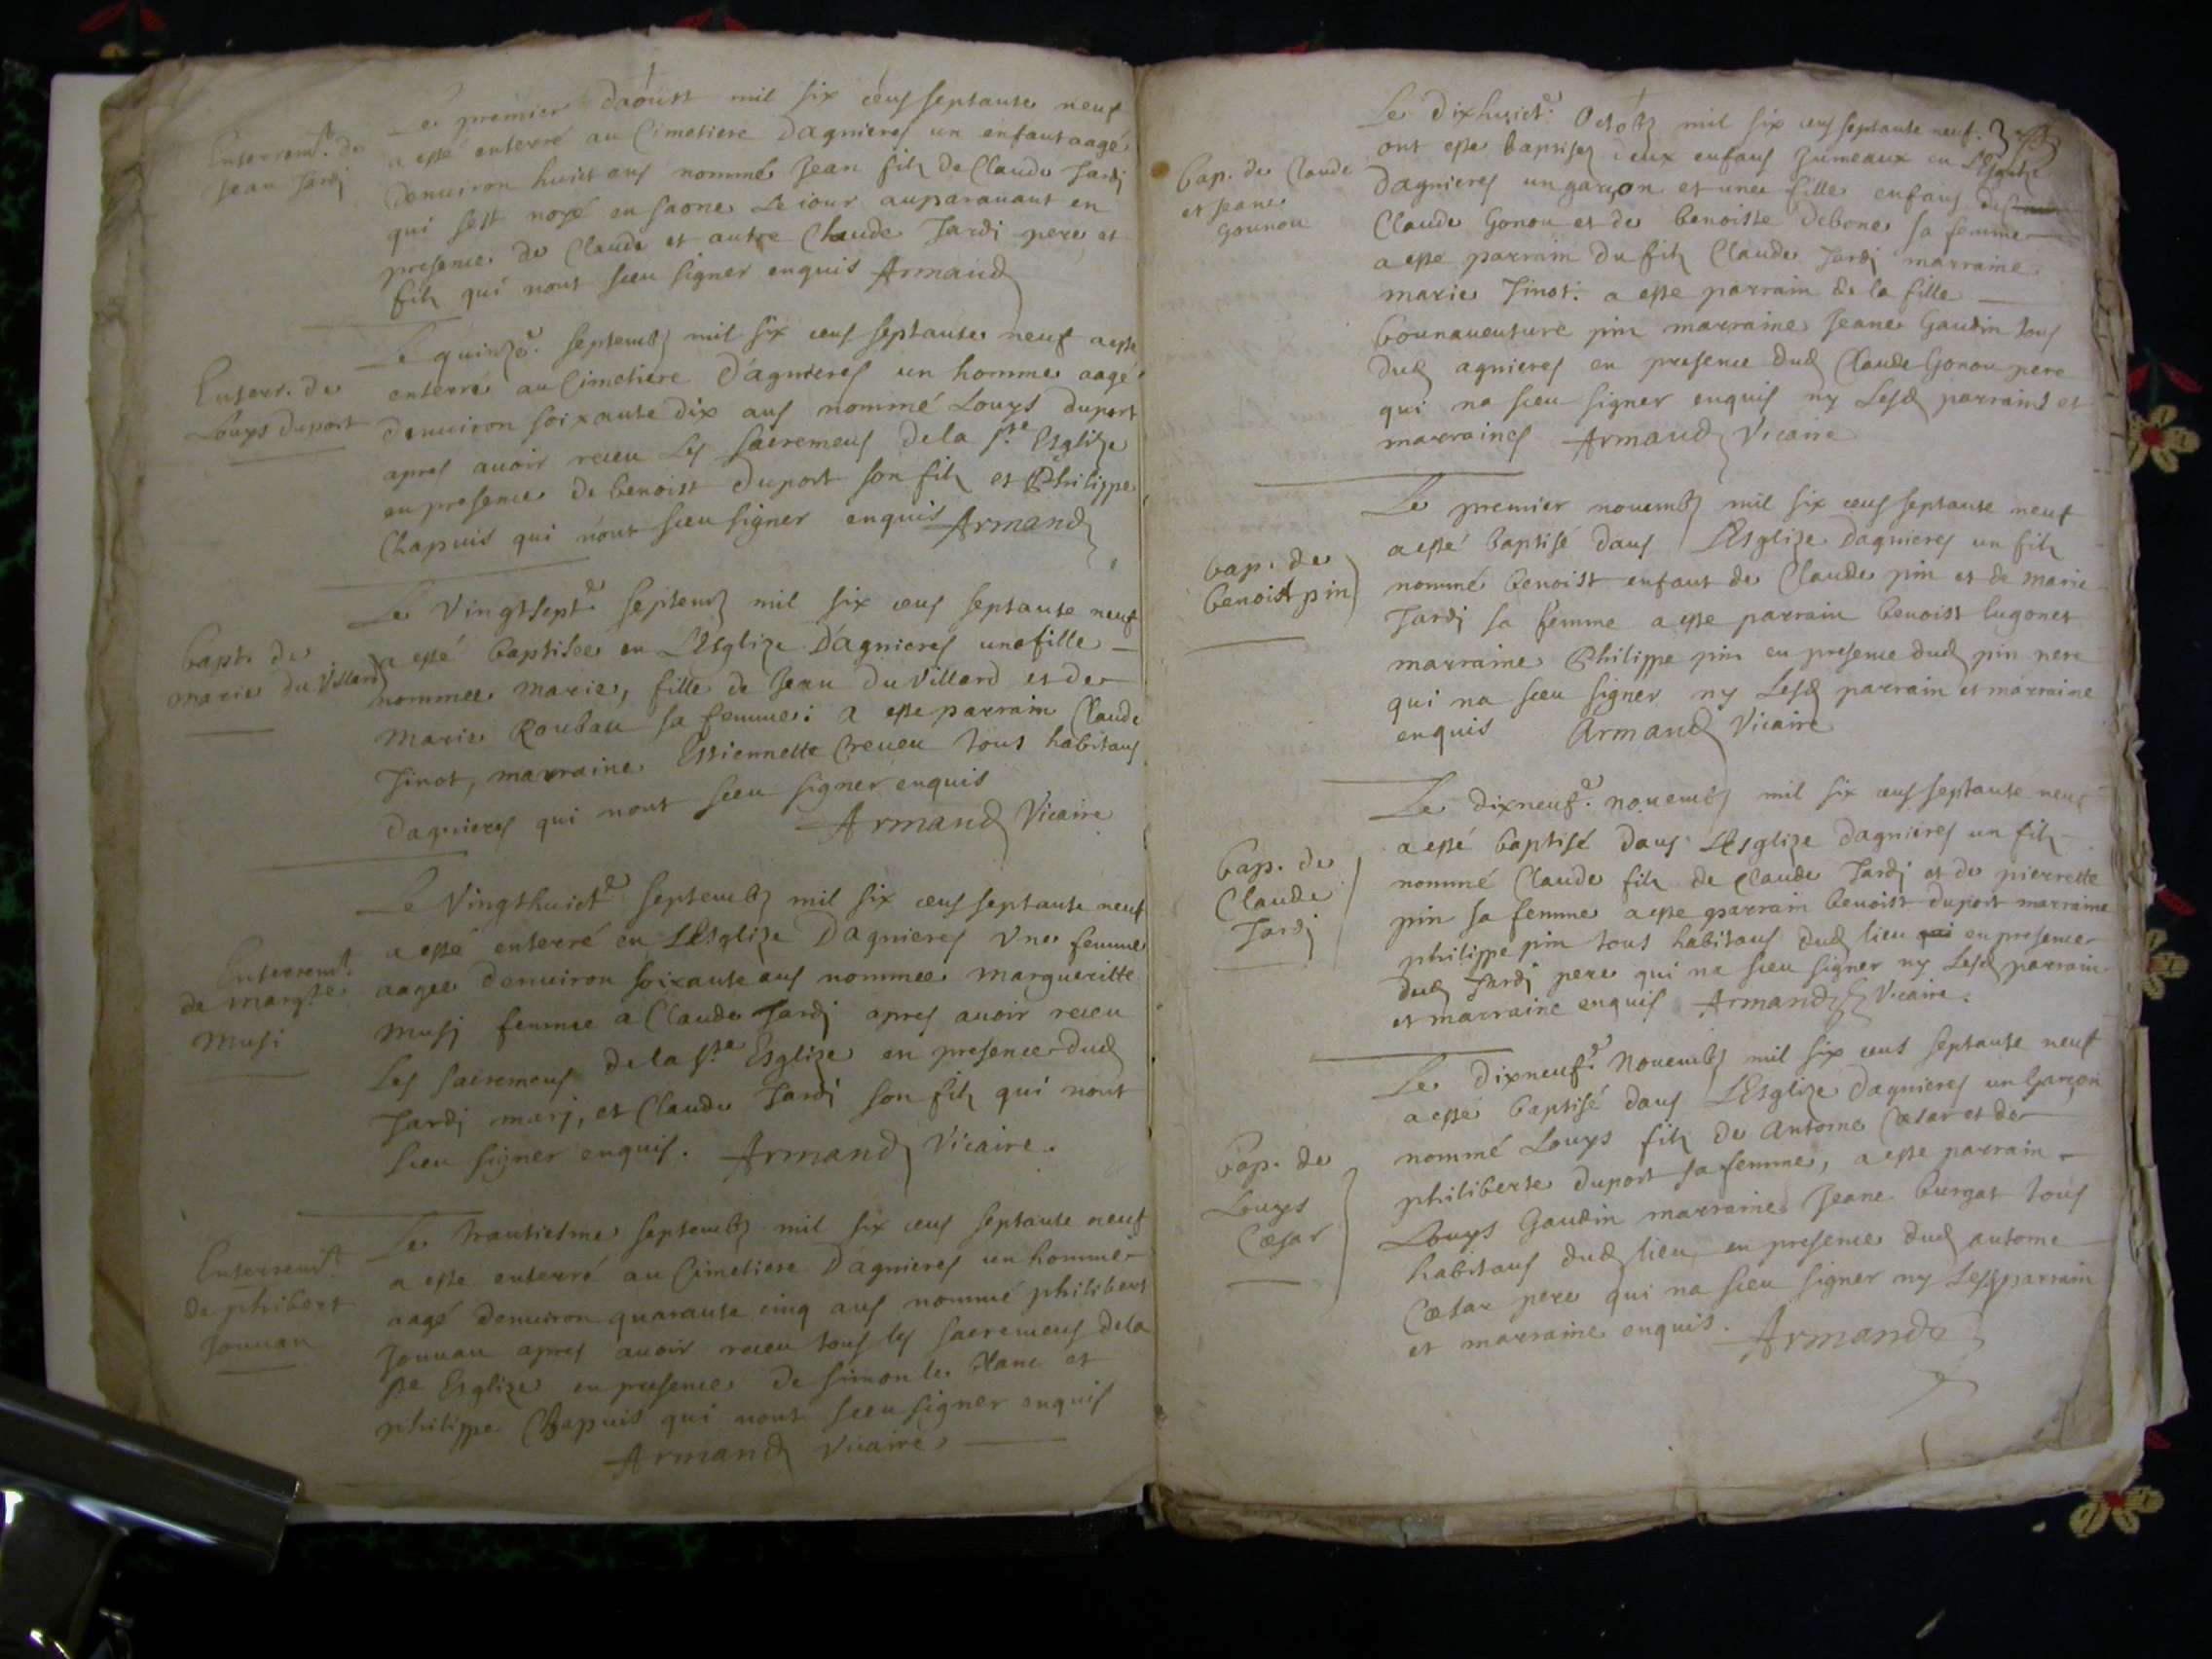 Enterremt. de
Jean Jardj
Le premier daoust mil six cens septante neuf
a esté enterré au Cimetiere dagnieres un enfant aagé
denuiron huict ans nommé Jean filz de Claude Jardj
qui sest noyé en saone le iour auparauant en
presence de Claude et autre Claude Jardi pere et
filz qui nont sceu signer enquis Armand
Enterr. de
Louys duport
Le quinze. septemb mil six cens septante neuf a este
enterré au Cimetiere d'agnieres un homme aagé
denuiron soixante dix ans nommé Louys duport
apres auoir receu les sacremens de la ste Esglize
en presence de benoist duport son filz et Philippe
Chapuis qui nont sceu signer enquis Armand
bapt. de
marie du Villard
Le Vingtsept.e septemb mil six cens septante neuf
a esté baptisee en L'Esglize d'agnieres une fille
nommee marie, fille de Jean du Villard et de
marie Roubau sa femme: a este parrain Claude
Tinot, marraine Estiennette Creueu tous habitans
dagnieres qui nont sceu signer enquis
Armand Vicaire
Enterremt.
de margte
Musi
Le Vingthuict.e septemb mil six cens septante neuf
a esté enterré en L'Esglize dagnieres Une femme
aagee denuiron soixante ans nommee margueritte
Musj femme a Claude Jardj apres auoir receu
les sacremens de la ste Esglize en presence dud
Jardj marj, et Claude Jardi son filz qui nont
sceu signer enquis. Armand Vicaire.
Enterremt.
de phibert
Jouuan
Le trantiesme septemb mil six cens septante neuf
a este enterré au Cimetiere dagnieres un homme
aagé denuiron quarante cinq ans nommé philibert
Jouuan apres auoir receu tous les sacremens dela
ste Esglize en presence de simon le blanc et
philippe Chapuis qui nont sceu signer enquis
Armand Vicaire
bap. de Claude
et Jeane
Gounou
Le dixhuict.e Octob mil six cens septante neuf.
ont este baptisez deux enfans Jumeaux en L'Esglize
dagnieres un garçon et une fille enfans de
Claude Gonou et de benoiste debone sa femme
a este parrain du filz Claude Jardj marraine
marie Tinot. a este parrain de la fille
bounauenture pin marraine Jeane Gaudin tous
dud agnieres en presence dud Claude Gonou pere
qui na sceu signer enquis ny Lesd parrains et
marraines Armand Vicaire
bap. de
benoist pin
Le premier nouemb mil six cens septante neuf
a esté baptisé dans L'Esglize dagnieres un filz
nommé benoist enfant de Claude pin et de marie
Jardj sa femme a este parrain benoist lugonet
marraine Philippe pin en presence dud pin pere
qui na sceu signer ny Lesd parrain et marraine
enquis Armand Vicaire
bap. de
Claude
Jardj
Le dixneuf.e nouemb mil six cens septante neuf
a esté baptisé dans L'Esglize dagnieres un filz
nommé Claude filz de Claude Jardj et de pierrette
pin sa femme a este parrain benoist duport marraine
philippe pin tous habitans dud lieu qui en presence
dud Jardj pere qui na sceu signer ny Lesd parrain
et marraine enquis Armand Vicaire.
bap. de
Louys
Cæsar
Le dixneuf.e Nouemb mil six cens septante neuf
a esté baptisé dans L'Esglize dagnieres un garçon
nommé Louys filz de Antoine Cæsar et de
philiberte duport sa femme, a este parrain
Louys Gaudin marraine Jeane burgat tous
habitans dud lieu en presence dud antoine
Cæsar pere qui na sceu signer ny Lesd parrain
et marraine enquis. Armand